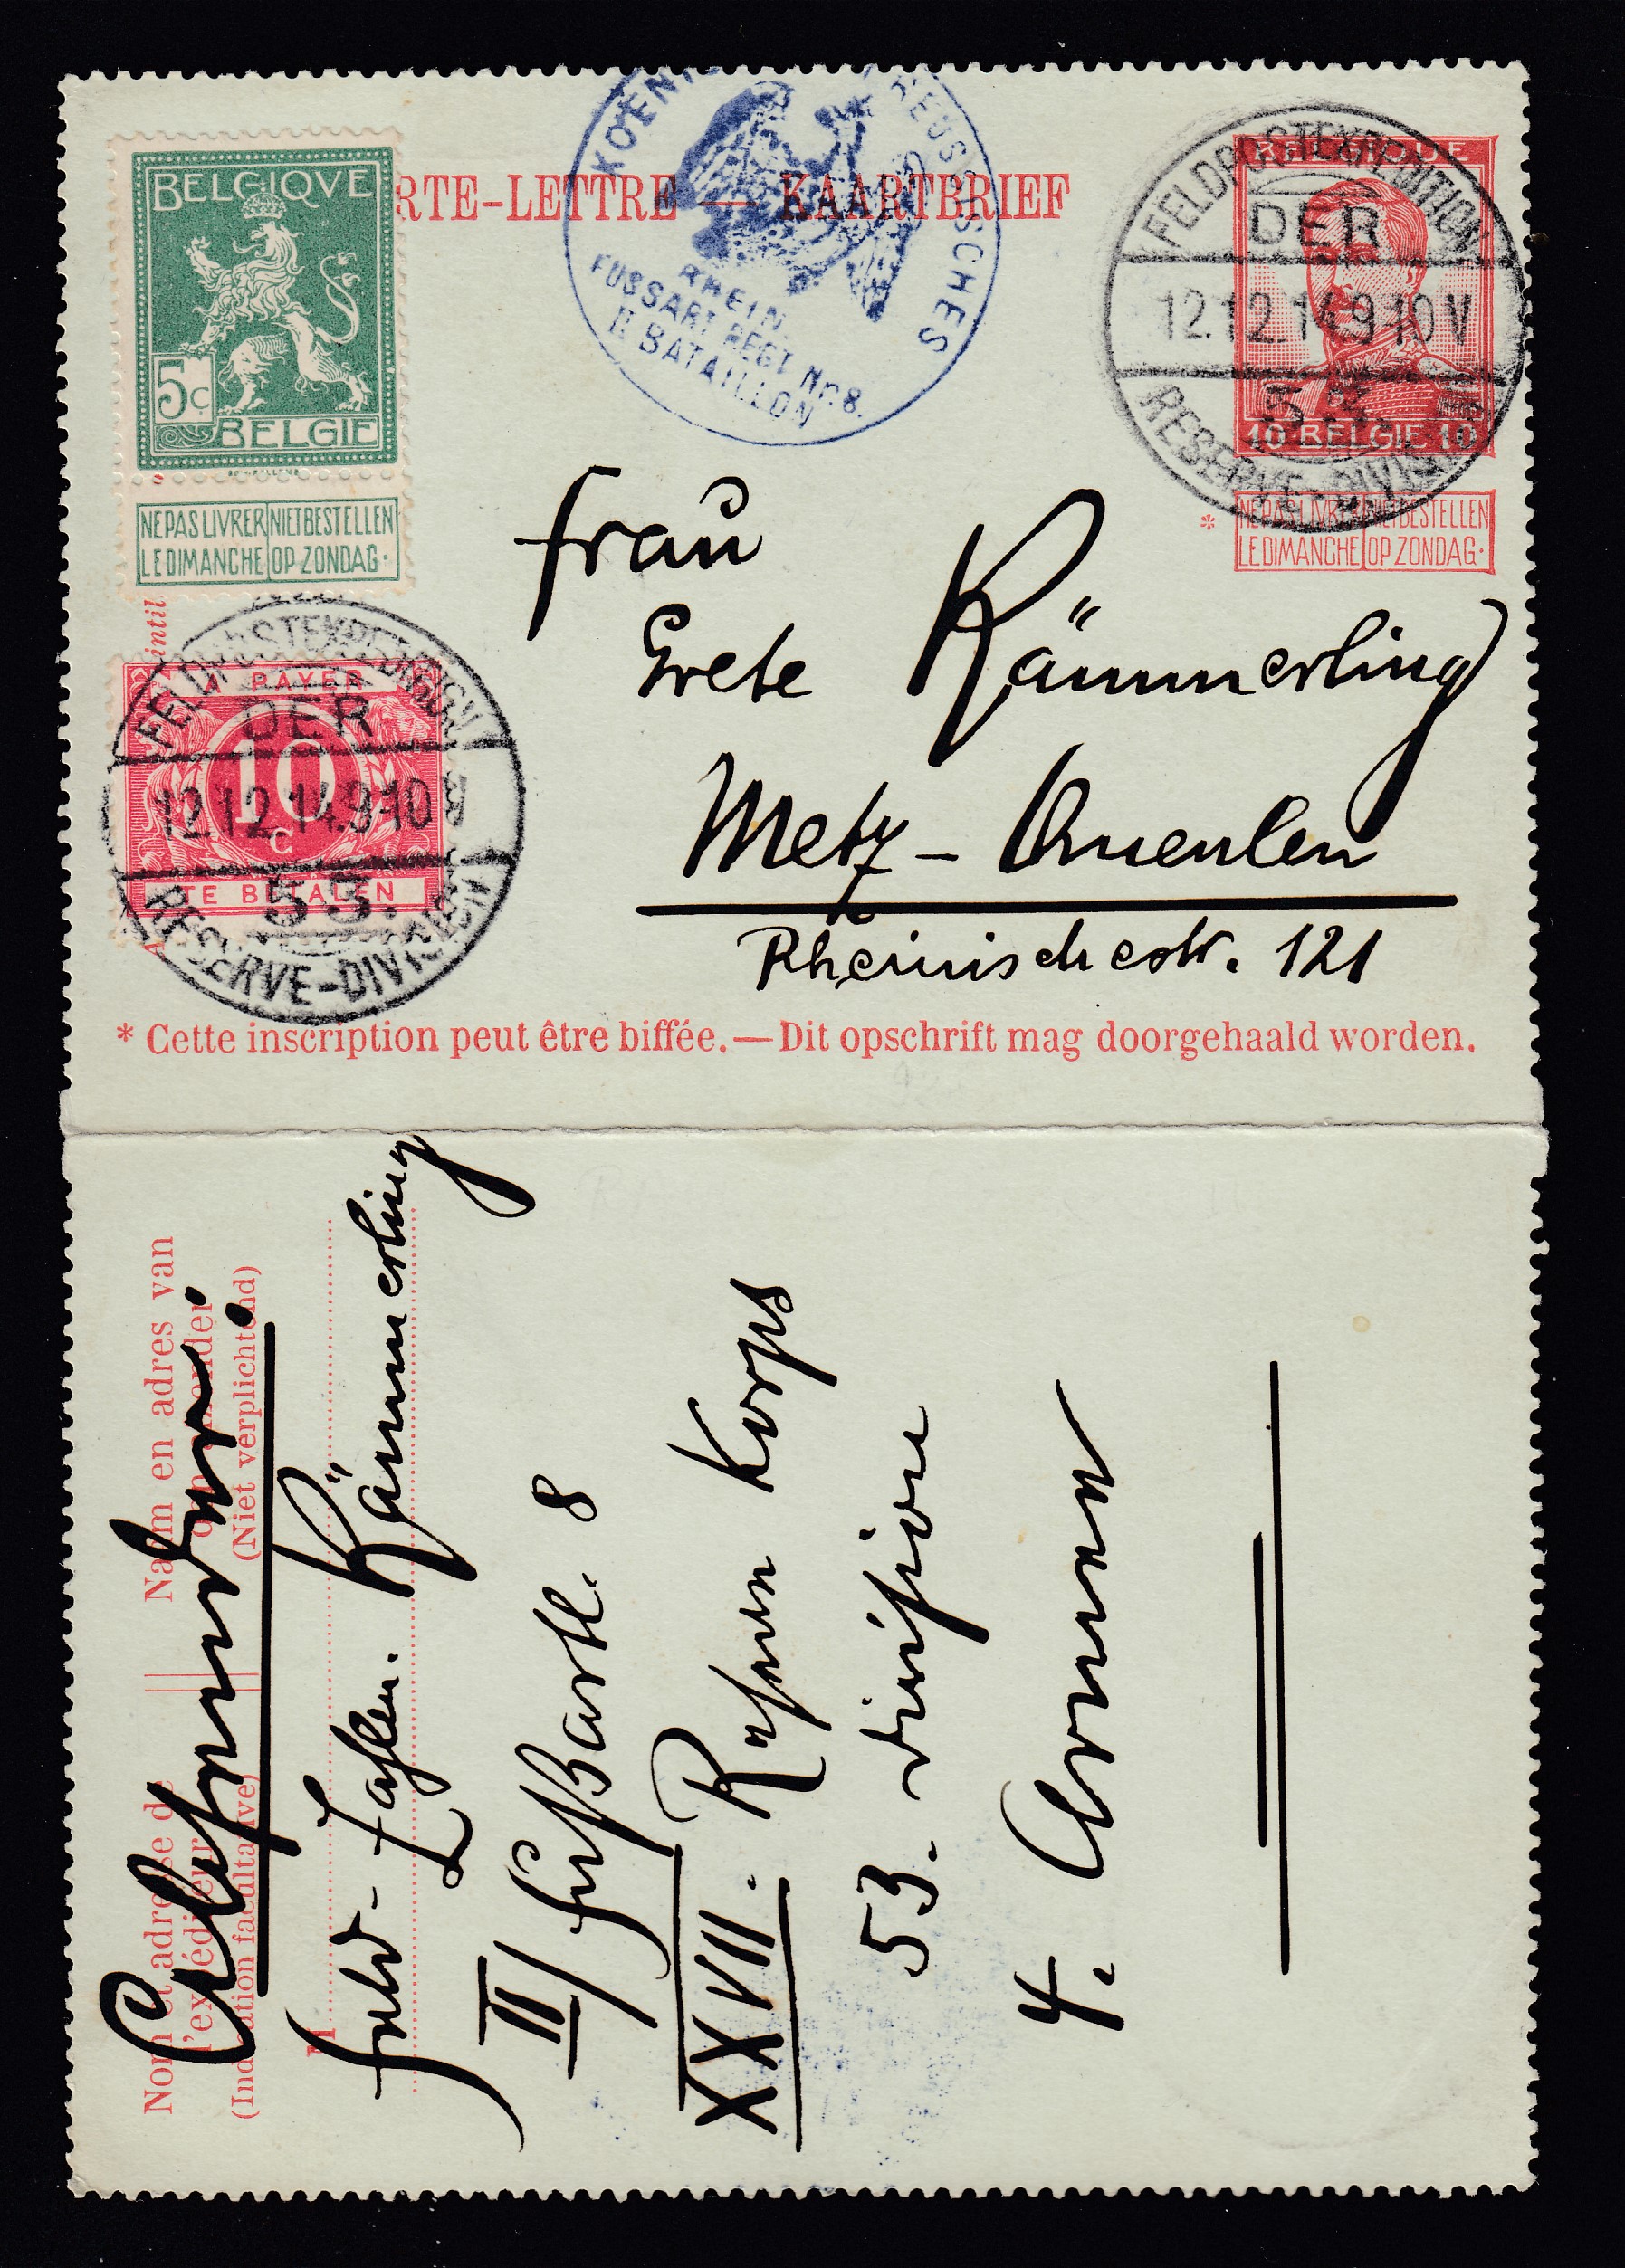 BELGIQVE
5c
BELGIE
NE PAS LIVRER NIET BESTELLEN
LE DIMANCHE OP ZONDAG.
RTE-LETTRE — KAARTBRIEF
REUSSISCHES
RHEIN.
FUSSART REGT Nr. 8.
II BATAILLON
BELGIQUE
10 BELGIE 10
FELDPOSTEXPEDITION
DER
12.12.14.9-10V
53.
RESERVE-DIVISION
* NE PAS LIVRER NIET BESTELLEN
LE DIMANCHE OP ZONDAG.
Frau
Grete Kämmerling
Metz - Queulen
Rheinischestr. 121
A PAYER
10
C
TE BETALEN
FELDPOSTEXPEDITION
DER
12.12.14.9-10V
53.
RESERVE-DIVISION
* Cette inscription peut être biffée.—Dit opschrift mag doorgehaald worden.
Nom et adresse de
l'expéditeur
(Indication facultative)
Naam en adres van
(Niet verplichtend)
M
Absender:
Kämmerling
II/Fußartl. 8
XXVII. Reserve Korps
53. Division
4. Armee